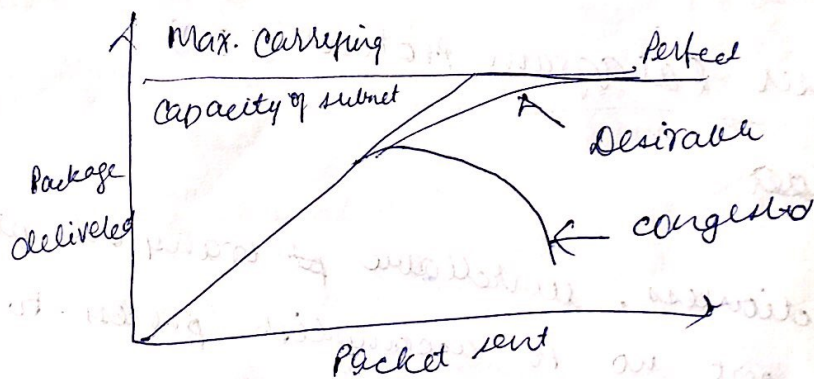 Max. Carrying
Perfect
Capacity of subnet
Desirable
Package
delivered
congested
Packet sent